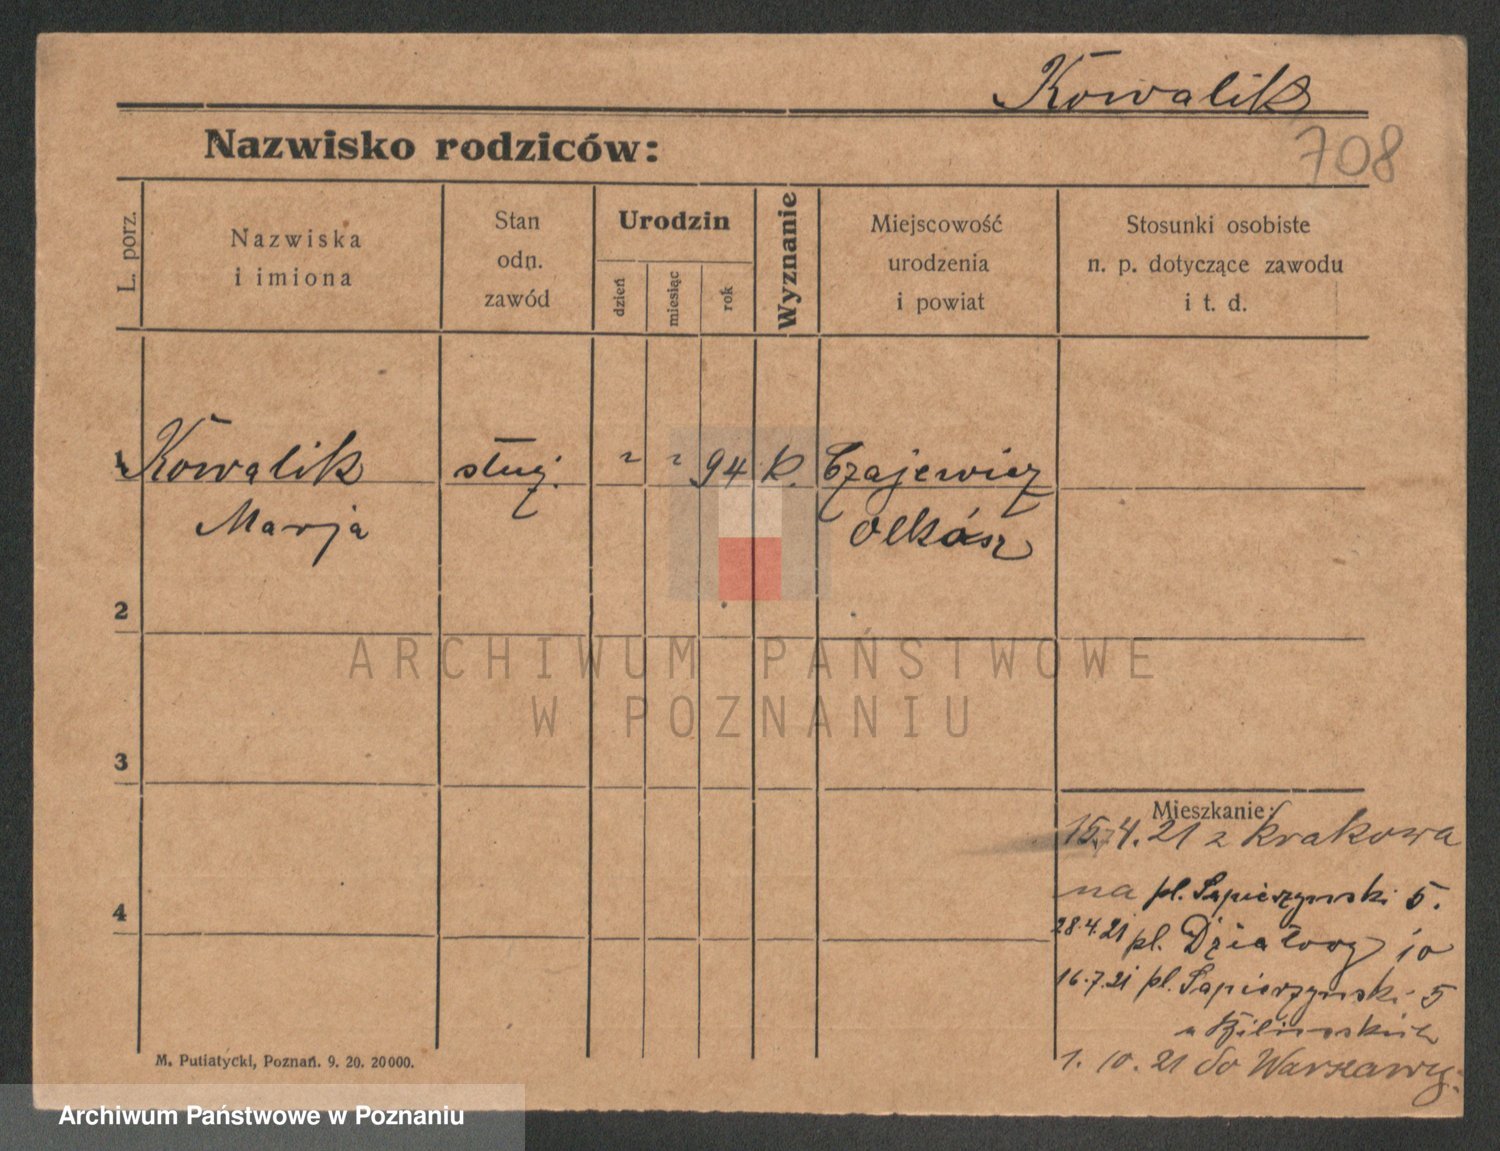 Kowalik
708
Nazwisko rodziców:
L. porz.
Nazwiska
i imiona
Stan
odn.
zawód
Urodzin
dzień
miesiąc
rok
Wyznanie
Miejscowość
urodzenia
i powiat
Stosunki osobiste
n. p. dotyczące zawodu
i t. d.
1 Kowalik służ. " " 94 k. Czajewicz
Marja Olkósz
2
ARCHIWUM PAŃSTWOWE
W POZNANIU
3
Mieszkanie:
15.4.21 z Krakowa
na pl. Sapieżyński 5.
4
28.4.21 pl. Działowy 10
16.7.21 pl. Sapieżyński 5
u
1.10.21 do Warszawy.
M. Putiatycki, Poznań. 9. 20. 20000.
Archiwum Państwowe w Poznaniu